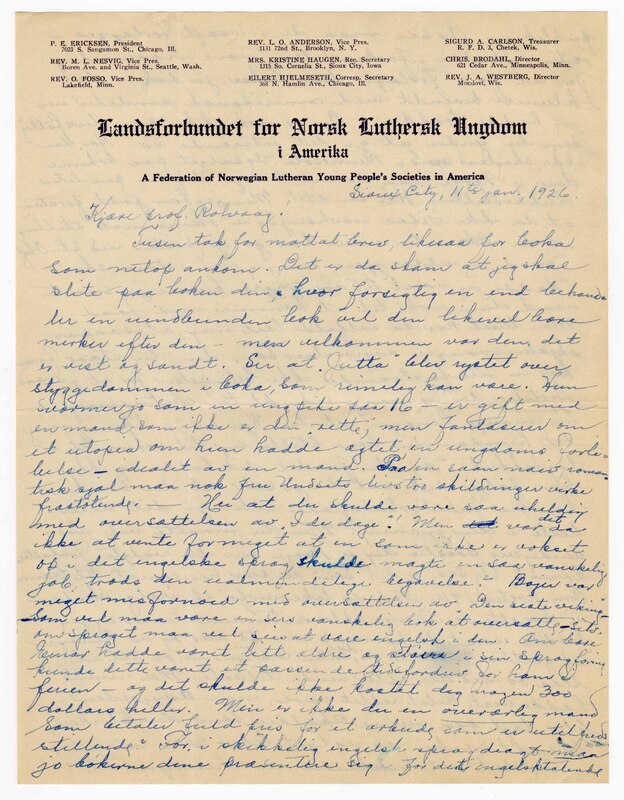 P. E. ERICKSEN, President
7023 S. Sangamon St., Chicago, Ill.
REV. M. L. NESVIG, Vice Pres.
Boren Ave. and Virginia St., Seattle, Wash.
REV. O. FOSSO, Vice Pres.
Lakefield, Minn.
REV. L. O. ANDERSON, Vice Pres.
1131 72nd St., Brooklyn, N. Y.
MRS. KRISTINE HAUGEN, Rec. Secretary
1315 So. Cornelia St., Sioux City, Iowa
EILERT HJELMESETH, Corresp, Secretary
368 N. Hamlin Ave., Chicago, Ill.
SIGURD A. CARLSON, Treasurer
R. F. D. 3, Chetek, Wis.
CHRIS. BRODAHL, Director
621 Cedar Ave., Minneapolis, Minn.
REV. J. A. WESTBERG, Director
Mondovi, Wis.
Landsforbundet for Norsk Luthersk Ungdom
i Amerika
A Federation of Norwegian Lutheran Young People's Societies in America
Sioux City, 11te jan, 1926.
Kjære prof. Rölvaag!
Tusen tak for mottat brev, likesaa for boka
som netop ankom. Det er da skam at jeg skal
slite paa boken din, hvor forsigtig en end behand-
ler en uindbunden bok vil den likevel bære
merker efter den - men velkommen var den, det
er vist og sandt. Ser at "Jutta" blev rystet over
styggedommen i boka, som rimelig kan være. Hun
sværmer jo som en ung pike paa 16 - er gift med
en mand som ikke er den rette, men fantaserer om
et utopia om hun hadde egtet en ungdoms forel-
skelse - idealet av en mand. Paa en saan naiv roman-
tisk sjæl maa nok fru Undsets livstro skildringer virke
frastötende. - Nei at du skulde være saa uheldig
med oversættelsen av "I de dage"! Men var det da
ikke at vente for meget at en som ikke er vokset
op i det engelske sprog skulde magte en saa vanskelig
job trods den ualmindelige begavelse? Bojer var
meget misfornöied med oversættelsen av "Den siste viking" -
som vel maa være en svær vanskelig bok at oversætte
om sproget maa vel sies at være engelsk i den. Om bare
Einar hadde været litt ældre og i sin sprogforing
kunde dette været et passende tidsfordriv for ham i
ferien - og det skulde ikke kostet dig nogen 300
dollars heller. Men er ikke du en overærlig mand
som betaler fuld pris for et arbeide som er utilfreds
stillende? For i skikkelig engelsk sprogdragt maa
jo bökerne dine præsentere sig for det engelsktalende